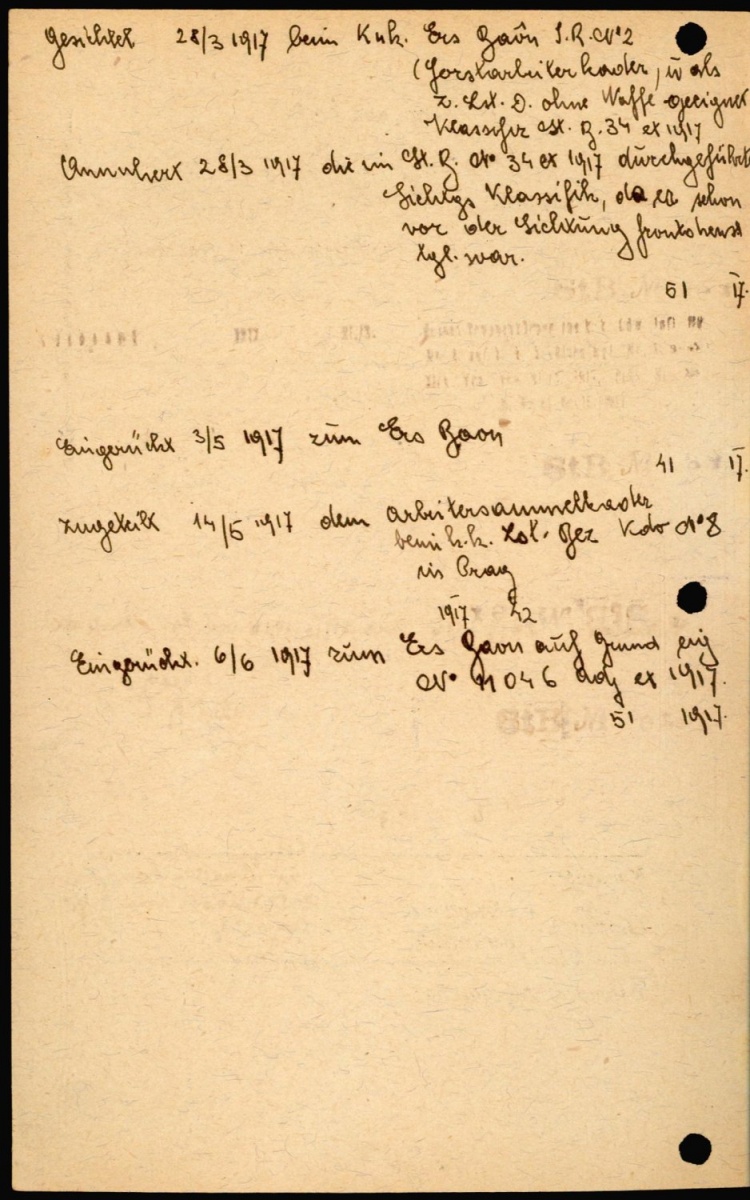 Gesichtet 28/3 1917 beim KuK. Ers Baõn I.R. No 2
(Forstarbeiterkader, u als
z. Lst. D. ohne Waffe geeignet
Klassifiz St. B. 34 ex 1917
Annuliert 28/3 1917 die im St. B. No 34 ex 1917 durchgeführte
Sichtgs Klassifik, da er schon
vor der Sichtung frontdienst
tgl. war.
51 17.
Eingerückt 3/5 1917 zum Ers Baon
41 17.
zugeteilt 14/5 1917 dem Arbeitersammelkader
beim k.k. Lst. Bez Kdo No 8
in Prag
1917 42
Eingerückt. 6/6 1917 zum Ers Baon auf Grund eig
No 11046 adj ex 1917.
51 1917.